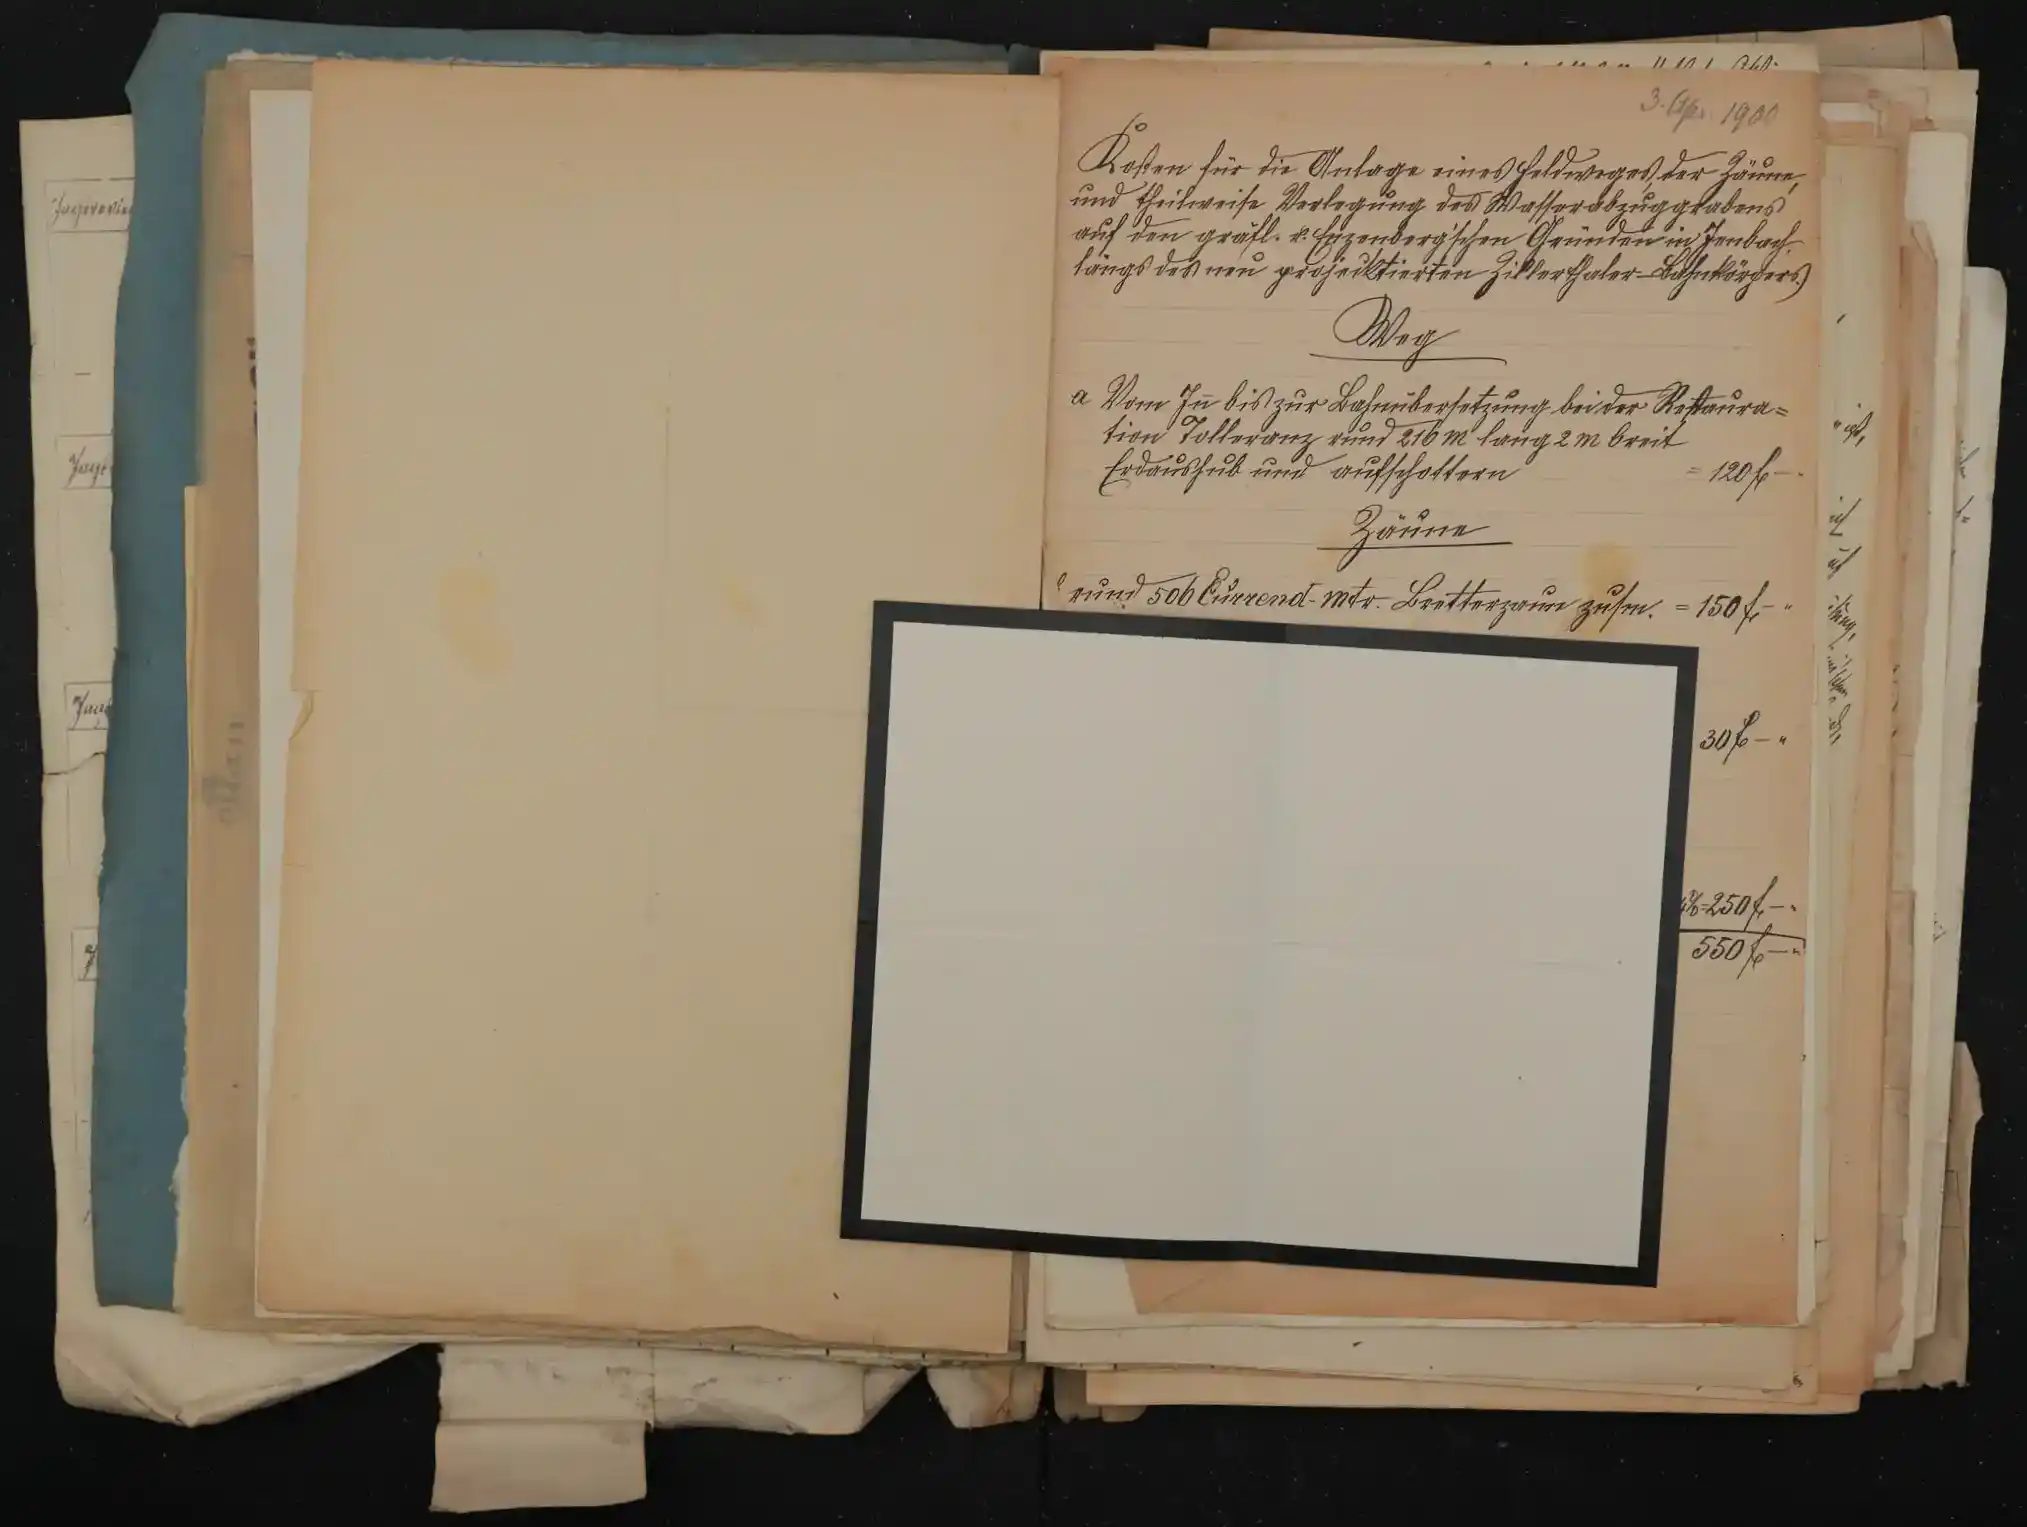 3. Apr. 1900
Kosten für die Anlage eines Feldweges, der Zäune,
und theilweise Verlegung des Wasserabzuggrabens
auf den gräfl. v. Enzenberg'schen Gründen in Jenbach
längs des neu projecktierten Zillerthaler-Bahnkörpers.
Weg
a Vom Inn bis zur Bahnübersetzung bei der Restaura=
tion Tolleranz rund 216 m lang 2 m breit
Erdaushub und aufschottern = 120 f –
Zäune
rund 506 Currend-Mtr. Bretterzaun zusm. = 150 f. – "
30 f – "
= 250 f. – "
550 f – "